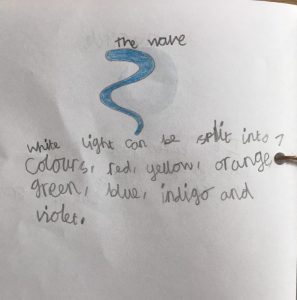 the wave
white light can be split into 7
colours, red, yellow, orange
green, blue, indigo and
violet.